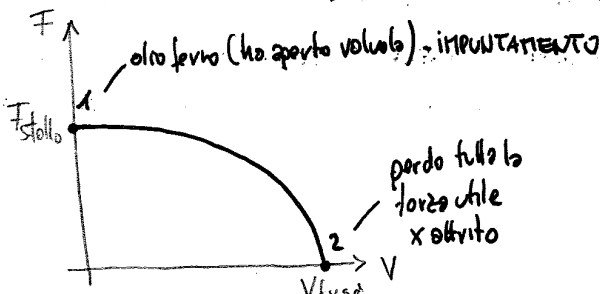 F
1
olio fermo (ho aperto valvola) - IMPUNTAMENTO
Fstallo
perdo tutta la
forza utile
x attrito
2
V